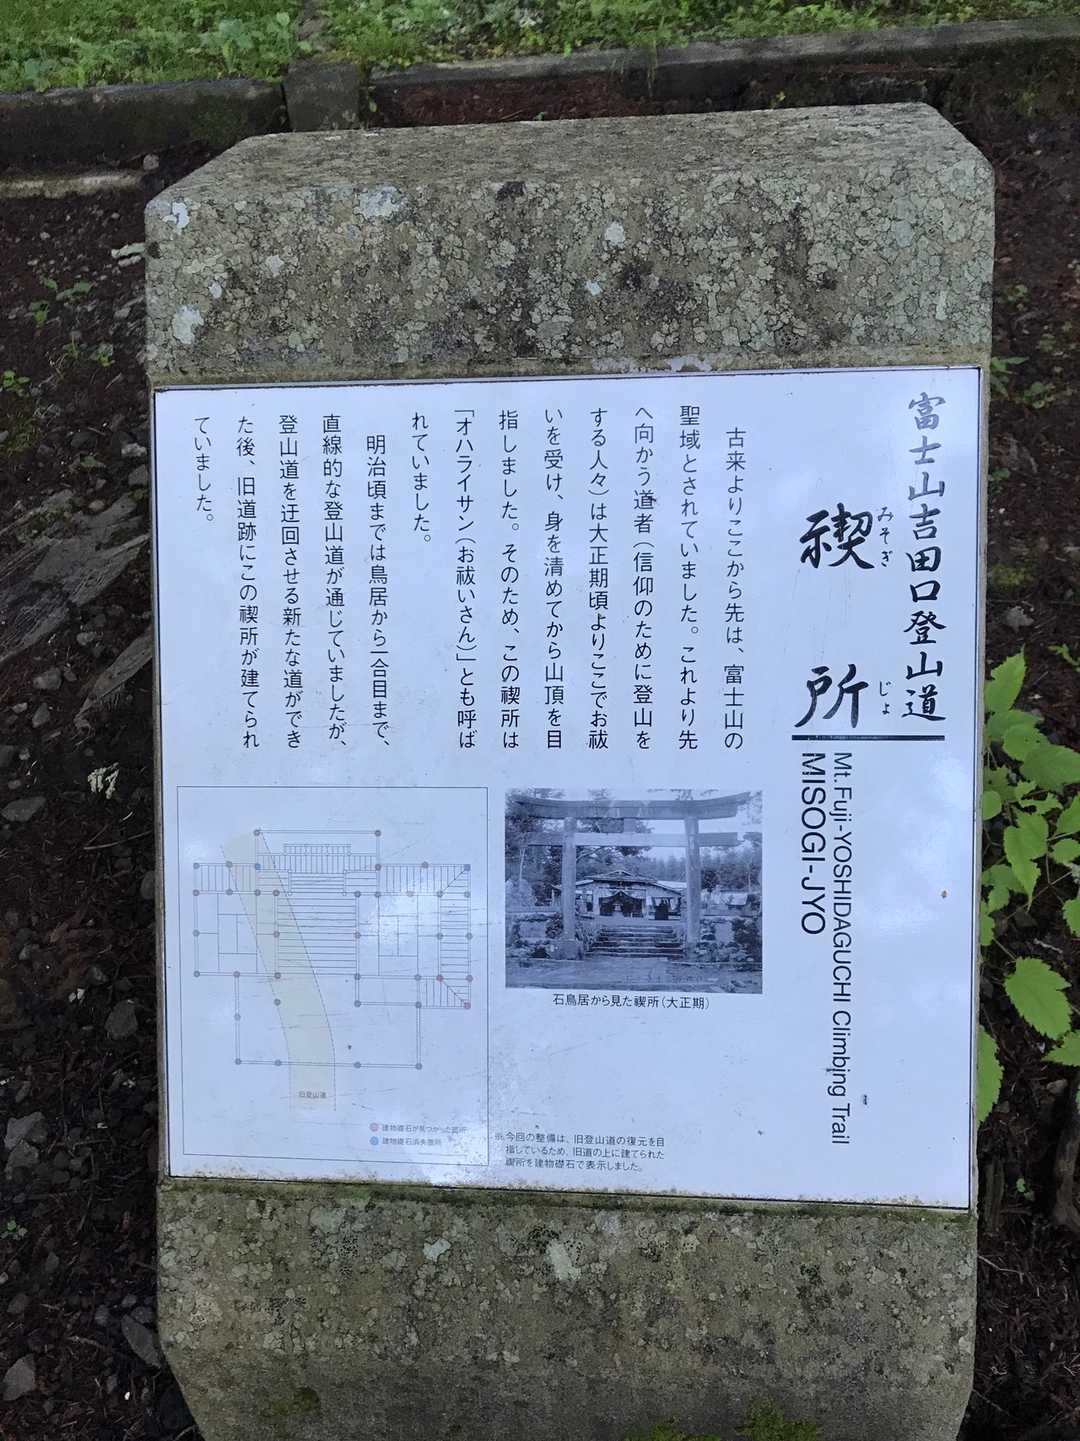 富士山吉田口登山道
禊所
みそぎ
じょ
Mt.Fuji-YOSHIDAGUCHI Climbing Trail
MISOGI-JYO
古来よりここから先は、富士山の
聖域とされていました。これより先
へ向かう道者（信仰のために登山を
する人々）は大正期頃よりここでお祓
いを受け、身を清めてから山頂を目
指しました。そのため、この禊所は
「オハライサン（お祓いさん）」とも呼ば
れていました。
明治頃までは鳥居から一合目まで、
直線的な登山道が通じていましたが、
登山道を迂回させる新たな道ができ
た後、旧道跡にこの禊所が建てられ
ていました。
石鳥居から見た禊所（大正期）
旧登山道
建物礎石が見つかった箇所
建物礎石消失箇所
※今回の整備は、旧登山道の復元を目
指しているため、旧道の上に建てられた
禊所を建物礎石で表示しました。